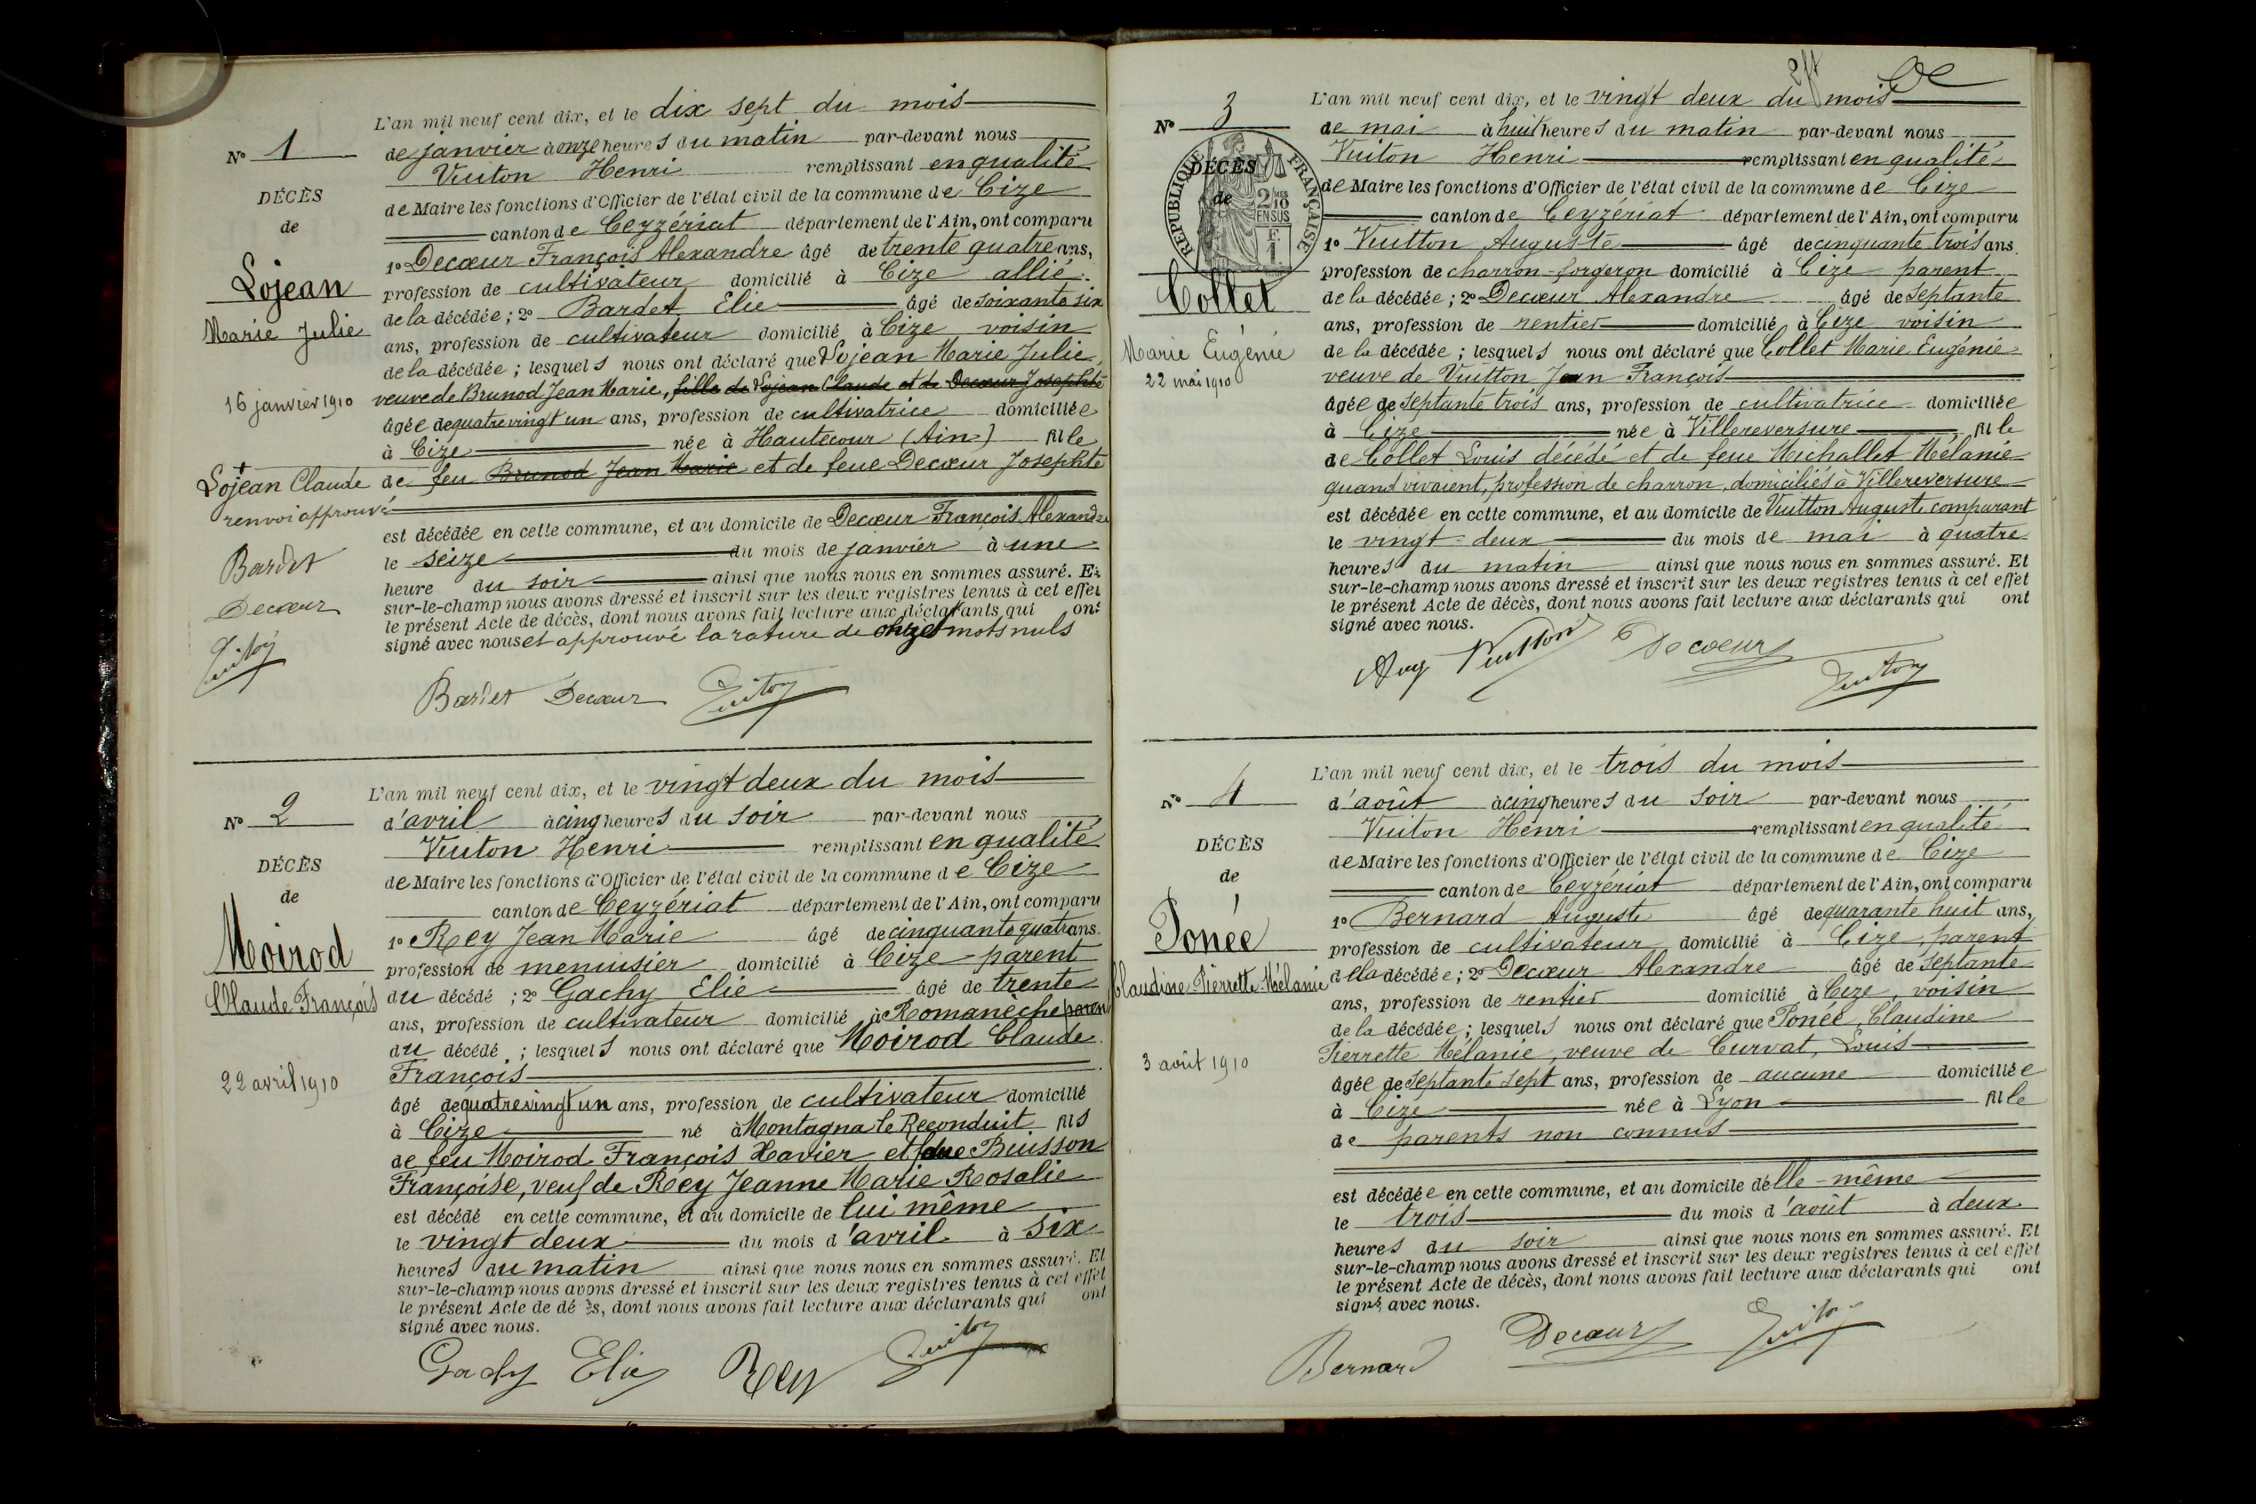 L'an mil neuf cent dix, et le dix sept du mois
N° 1
de janvier à onze heures du matin par-devant nous
Vuiton Henri remplissant en qualité
DÉCÈS
de Maire les fonctions d'Officier de l'état civil de la commune de Cize
de
canton de Ceyzériat département de l'Ain, ont comparu
1° Decœur François Alexandre âgé de trente quatre ans,
Lojean
profession de cultivateur domicilié à Cize allié
Marie Julie
de la décédée ; 2° Bardet Elie âgé de soixante six
ans, profession de cultivateur domicilié à Cize voisin
de la décédée ; lesquels nous ont déclaré que Lojean Marie Julie,
16 janvier 1910
veuve de Brunod Jean Marie, fille de Lojean Claude et de Decœur Josephte
âgée de quatre vingt un ans, profession de cultivatrice domiciliée
à Cize née à Hautecour (Ain) fille
Lojean Claude
de feu Brunod Jean Marie et de feue Decœur Josephte
renvoi approuvé
est décédée en cette commune, et au domicile de Decœur François Alexandre
le seize du mois de janvier à une
Bardet
heure du soir ainsi que nous nous en sommes assuré. Et
Decœur
sur-le-champ nous avons dressé et inscrit sur les deux registres tenus à cet effet
le présent Acte de décès, dont nous avons fait lecture aux déclarants qui ont
Vuiton
signé avec nous et approuvé la rature de mots nuls
Bardet Decœur Vuiton
L'an mil neuf cent dix, et le vingt deux du mois
N° 2
d'avril à cinq heures du soir par-devant nous
Vuiton Henri remplissant en qualité
DÉCÈS
de Maire les fonctions d'Officier de l'état civil de la commune de Cize
de
canton de Ceyzériat département de l'Ain, ont comparu
1° Rey Jean Marie âgé de cinquante quatre ans.
Moirod
profession de menuisier domicilié à Cize parent
Claude François
du décédé ; 2° Gachy Elie âgé de trente
ans, profession de cultivateur domicilié à Romanèche parent
du décédé ; lesquels nous ont déclaré que Moirod Claude
22 avril 1910
François
âgé de quatre vingt un ans, profession de cultivateur domicilié
à Cize né à Montagna le Reconduit fils
de feu Moirod François Xavier et feue Buisson
Françoise, veuf de Rey Jeanne Marie Rosalie
est décédé en cette commune, et au domicile de lui même
le vingt deux du mois d'avril à six
heures du matin ainsi que nous nous en sommes assuré. Et
sur-le-champ nous avons dressé et inscrit sur les deux registres tenus à cet effet
le présent Acte de décès, dont nous avons fait lecture aux déclarants qui ont
signé avec nous.
Gachy Elie Rey Vuiton
L'an mil neuf cent dix, et le vingt deux du mois
N° 3
de mai à huit heures du matin par-devant nous
Vuiton Henri remplissant en qualité
DÉCÈS
RÉPUBLIQUE FRANÇAISE
de Maire les fonctions d'Officier de l'état civil de la commune de Cize
de
2/10 EN SUS
canton de Ceyzériat département de l'Ain, ont comparu
F. 1
1° Vuitton Auguste âgé de cinquante trois ans.
profession de charron-forgeron domicilié à Cize parent
Collet
de la décédée ; 2° Decœur Alexandre âgé de septante
ans, profession de rentier domicilié à Cize voisin
Marie Eugénie
de la décédée ; lesquels nous ont déclaré que Collet Marie Eugénie
22 mai 1910
veuve de Vuitton Jean François
âgée de septante trois ans, profession de cultivatrice domiciliée
à Cize née à Villereversure fille
de Collet Louis décédé et de feue Michallet Mélanie
quand vivaient, profession de charron, domiciliés à Villereversure
est décédée en cette commune, et au domicile de Vuitton Auguste comparant
le vingt-deux du mois de mai à quatre
heures du matin ainsi que nous nous en sommes assuré. Et
sur-le-champ nous avons dressé et inscrit sur les deux registres tenus à cet effet
le présent Acte de décès, dont nous avons fait lecture aux déclarants qui ont
signé avec nous.
Aug Vuitton Decœur Vuiton
L'an mil neuf cent dix, et le trois du mois
N° 4
d'août à cinq heures du soir par-devant nous
Vuiton Henri remplissant en qualité
DÉCÈS
de Maire les fonctions d'Officier de l'état civil de la commune de Cize
de
canton de Ceyzériat département de l'Ain, ont comparu
1° Bernard Auguste âgé de quarante huit ans,
Ponée
profession de cultivateur domicilié à Cize, parent
Claudine Pierrette Mélanie
de la décédée ; 2° Decœur Alexandre âgé de septante
ans, profession de rentier domicilié à Cize, voisin
de la décédée ; lesquels nous ont déclaré que Ponée, Claudine
3 août 1910
Pierrette Mélanie, veuve de Curvat, Louis
âgée de septante sept ans, profession de aucune domiciliée
à Cize née à Lyon fille
de parents non connus
est décédée en cette commune, et au domicile d'elle-même
le trois du mois d'août à deux
heures du soir ainsi que nous nous en sommes assuré. Et
sur-le-champ nous avons dressé et inscrit sur les deux registres tenus à cet effet
le présent Acte de décès, dont nous avons fait lecture aux déclarants qui ont
signé avec nous.
Bernard Decœur Vuiton